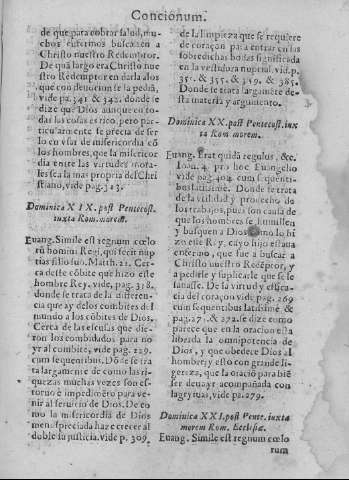 Concionum.
de que para cobrar salud, mu-
chos enfermos buscassen a
Christo nuestro Redemptor.
De quã largo era Christo nue
stro Redemptor en darla a los
que con deuocion se la pediã,
vide pag. 341 & 342. donde se
dize que Dios aunque en to-
das los cosas es rico, pero par-
ticularmente se precia de ser
lo en vsar de misericordia cõ
los hombres, que la misericor
dia entre las virtudes mora-
les sea la mas propria del Chri
stiano, vide pag. 323.
Dominica XIX. post Pentecost.
iuxta Rom. morem.
Euang. Simile est regnum cœlo
rũ homini Regi, qui fecit nup
tias filio suo. Matth. 22. Cerca
deste cõbite que hizo este
hombre Rey, vide pag. 318.
donde se trata de la diferen-
cia que ay delos combites del
mundo a los cõbites de Dios.
Cerca de las escusas que die-
ron los combidados para no
yr al combite, vide pag. 229.
cum sequentibus. Dõde se tra
ta largamente de como las ri-
quezas muchas vezes son es-
toruo e impedimẽto para ve-
nir al seruicio de Dios. De co
mo la misericordia de Dios
menospreciada haze crecer al
doble su justicia. vide p. 309.
de la limpieza que se requiere
de coraçon para entrar en las
sobredichas bodas significada
en la vestidura nuptial. vid. p.
351. & 355. & 349. & 385.
Donde se trata largamẽte de-
sta materia y argumento.
Dominica XX. post Pentecost. iux
ta Rom morem.
Euang. Erat quidã regulus, &c.
Ioan. 4. pro hoc Euangelio
vide pag. 404. cum sequenti-
bus latissimè. Donde se trata
de la vtilidad y prouecho de
los trabajos, pues son causa de
que los hombres se humillen
y busquen a Dios como lo hi
zo este Rey, cayo hijo estaua
enfermo, que fue a buscar a
Christo nuestro Redẽptor, y
a pedirle y suplicarle que se le
sanasse. De la virtud y effica-
cia del coraçon vide pag. 269
cum sequentibus latissimè &
pag. 271. & 272. se dize como
parece que en la oracion esta
librada la omnipotencia de
Dios, y que obedece Dios al
hombre, y esto con grande li-
gereza, y que la oracio para biẽ
ser deua yr acompañada con
lagrymas, vide pa. 279.
Dominica XXI. post Pente. iuxta
morem Rom. Ecclesiæ.
Euang. Simile est regnum cœlo
rum